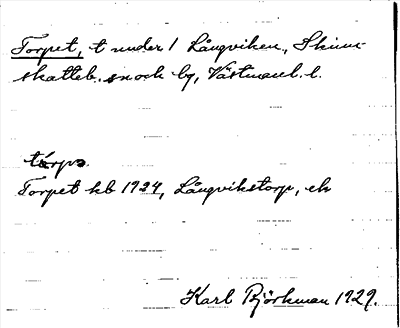 Torpet, t under 1 Långviken, Skinn-
skatteb. snock by, Västmanl. l.
tórpə
Torpet kb 1924, Långvikstorp, ek
Karl Björkman 1929.